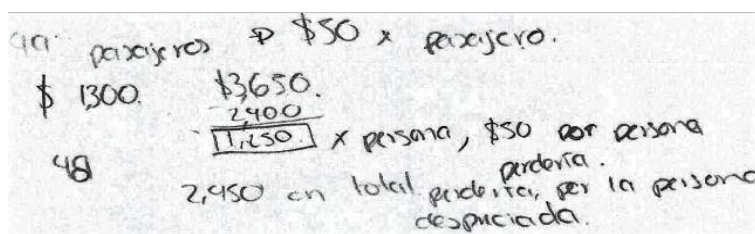 49 pasajeros → $50 x pasajero.
$ 1300. $3650.
- 2400
1,250. x persona, $50 por persona
perdería.
48
2,450 en total perdería, por la persona
despreciada.